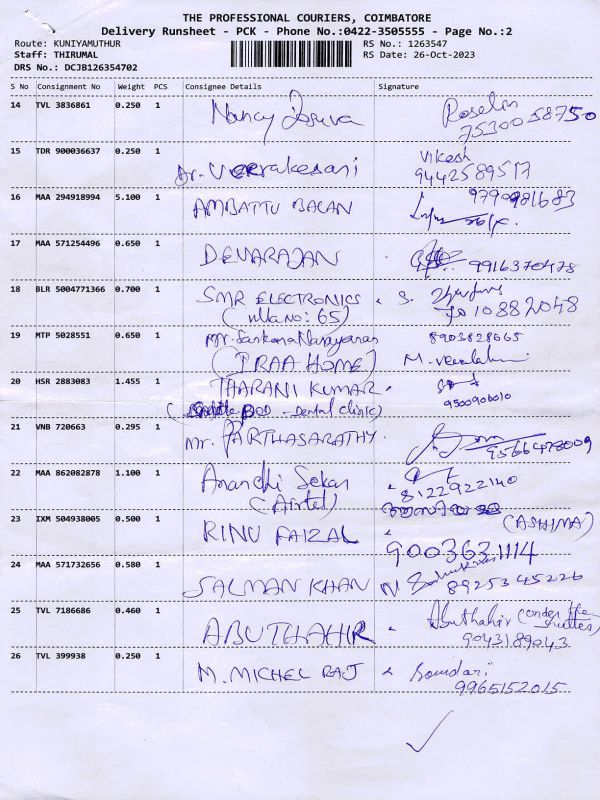 THE PROFESSIONAL COURIERS, COIMBATORE
Delivery Runsheet - PCK - Phone No.:0422-3505555 - Page No.:2
Route: KUNIYAMUTHUR RS No.: 1263547
Staff: THIRUMAL RS Date: 26-Oct-2023
DRS No.: DCJB126354702
S No Consignment No Weight PCS Consignee Details Signature
14 TVL 3836861 0.250 1 Nancy Roselin
7530058750
15 TDR 900036637 0.250 1 Dr. Veerakesari Vikesh
9442589517
16 MAA 294918994 5.100 1 AMBATTU BALAN
17 MAA 571254496 0.650 1 DEVARAJAN 9916370478
18 BLR 5004771366 0.700 1 SMR ELECTRONICS S.
(Villa no: 65) 7010882048
19 MTP 5028551 0.650 1 Mr. Sankara Narayanan 8903828665
(PRAA HOME) M.
20 HSR 2883083 1.455 1 THARANI KUMAR.
- Dental clinic) 9500900010
21 VNB 720663 0.295 1 Mr. PARTHASARATHY. 9566478009
22 MAA 862082878 1.100 1 Anandhi Sekar
(Airtel) 8122922140
23 IXM 504938005 0.500 1 RINU FAIZAL (ASHIMA)
9003631114
24 MAA 571732656 0.580 1 SALMAN KHAN
8925345226
25 TVL 7186686 0.460 1 ABUTHAHIR Abuthahir (under the shutter)
9043189043
26 TVL 399938 0.250 1 M. MICHEL RAJ Soundari
9965152015